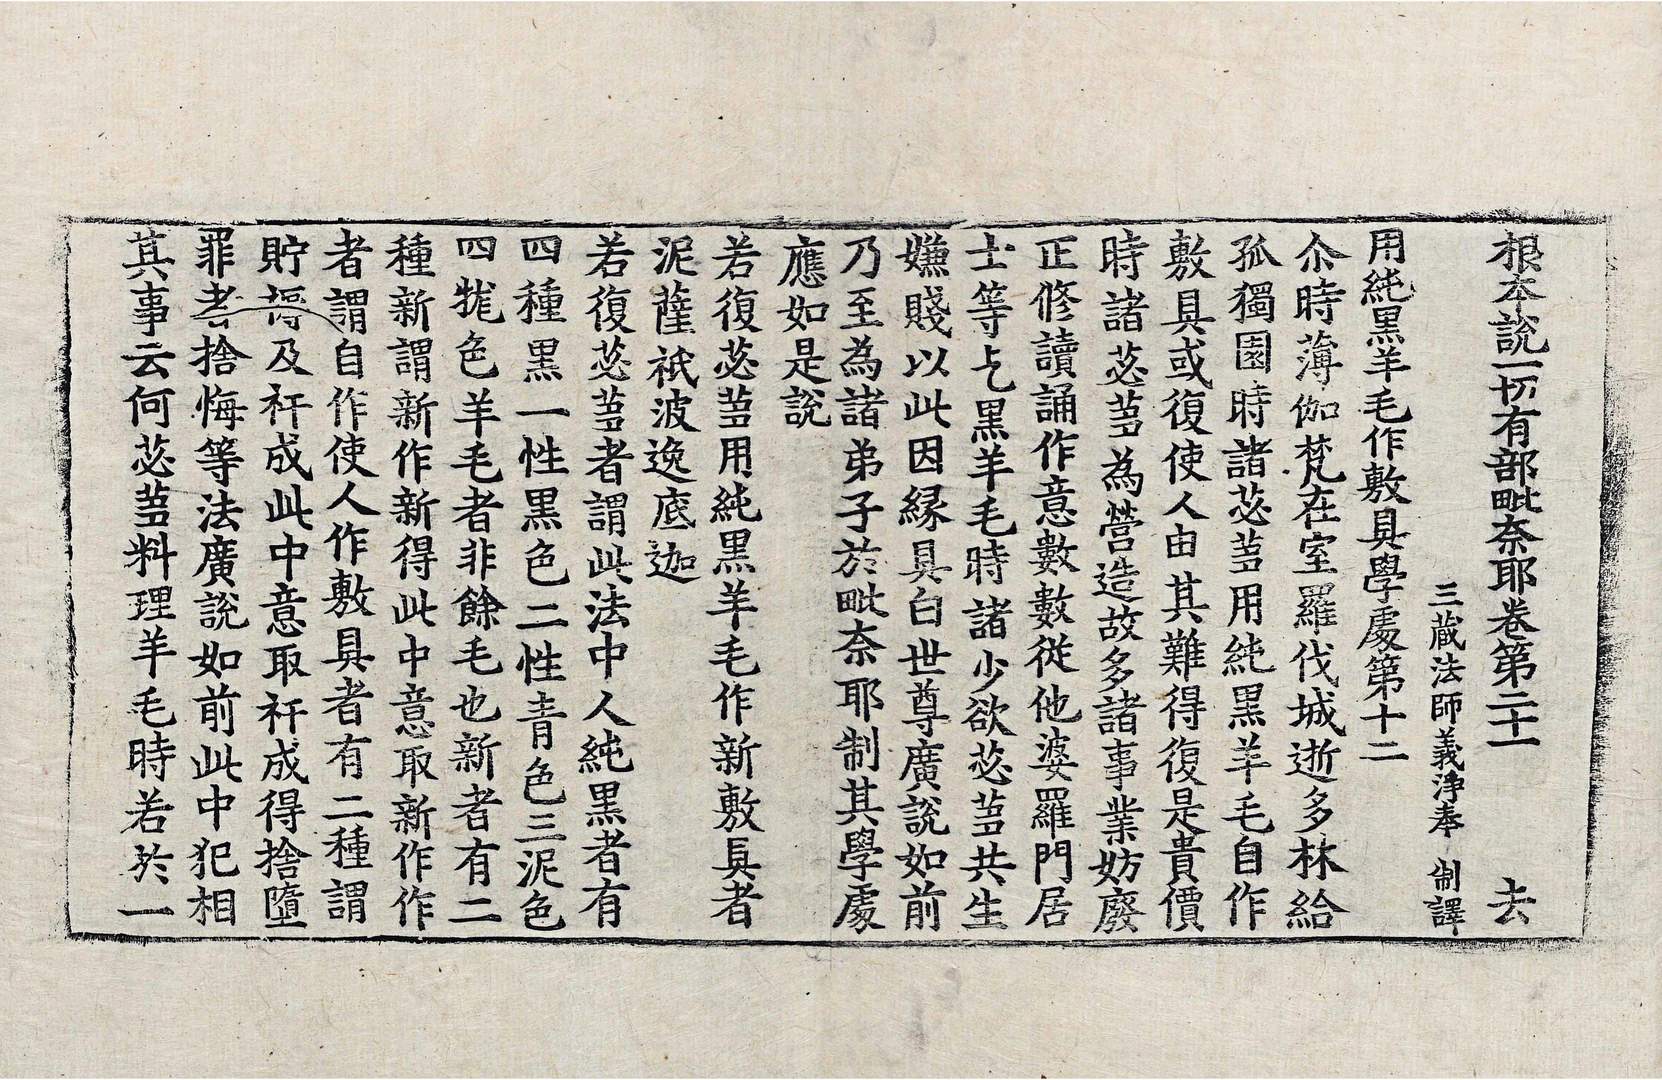 根本說一切有部毗奈耶卷第二十一　去
三藏法師義淨奉　制譯
用純黑羊毛作敷具學處第十二
尒時薄伽梵在室羅伐城逝多林給
孤獨園時諸苾芻用純黑羊毛自作
敷具或復使人由其難得復是貴價
時諸苾芻為營造故多諸事業妨廢
正修讀誦作意數數從他婆羅門居
士等乞黑羊毛時諸少欲苾芻共生
嫌賤以此因縁具白世尊廣說如前
乃至為諸弟子於毗奈耶制其學處
應如是說
若復苾芻用純黑羊毛作新敷具者
泥薩祇波逸底迦
若復苾芻者謂此法中人純黑者有
四種黑一性黑色二性青色三泥色
四牻色羊毛者非餘毛也新者有二
種新謂新作新得此中意取新作作
者謂自作使人作敷具者有二種謂
貯褥及杆成此中意取杆成得捨墮
罪者捨悔等法廣說如前此中犯相
其事云何苾芻料理羊毛時若於一